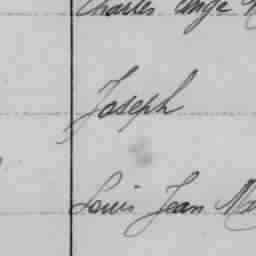 Charles Ange
Joseph
Louis Jean Ma